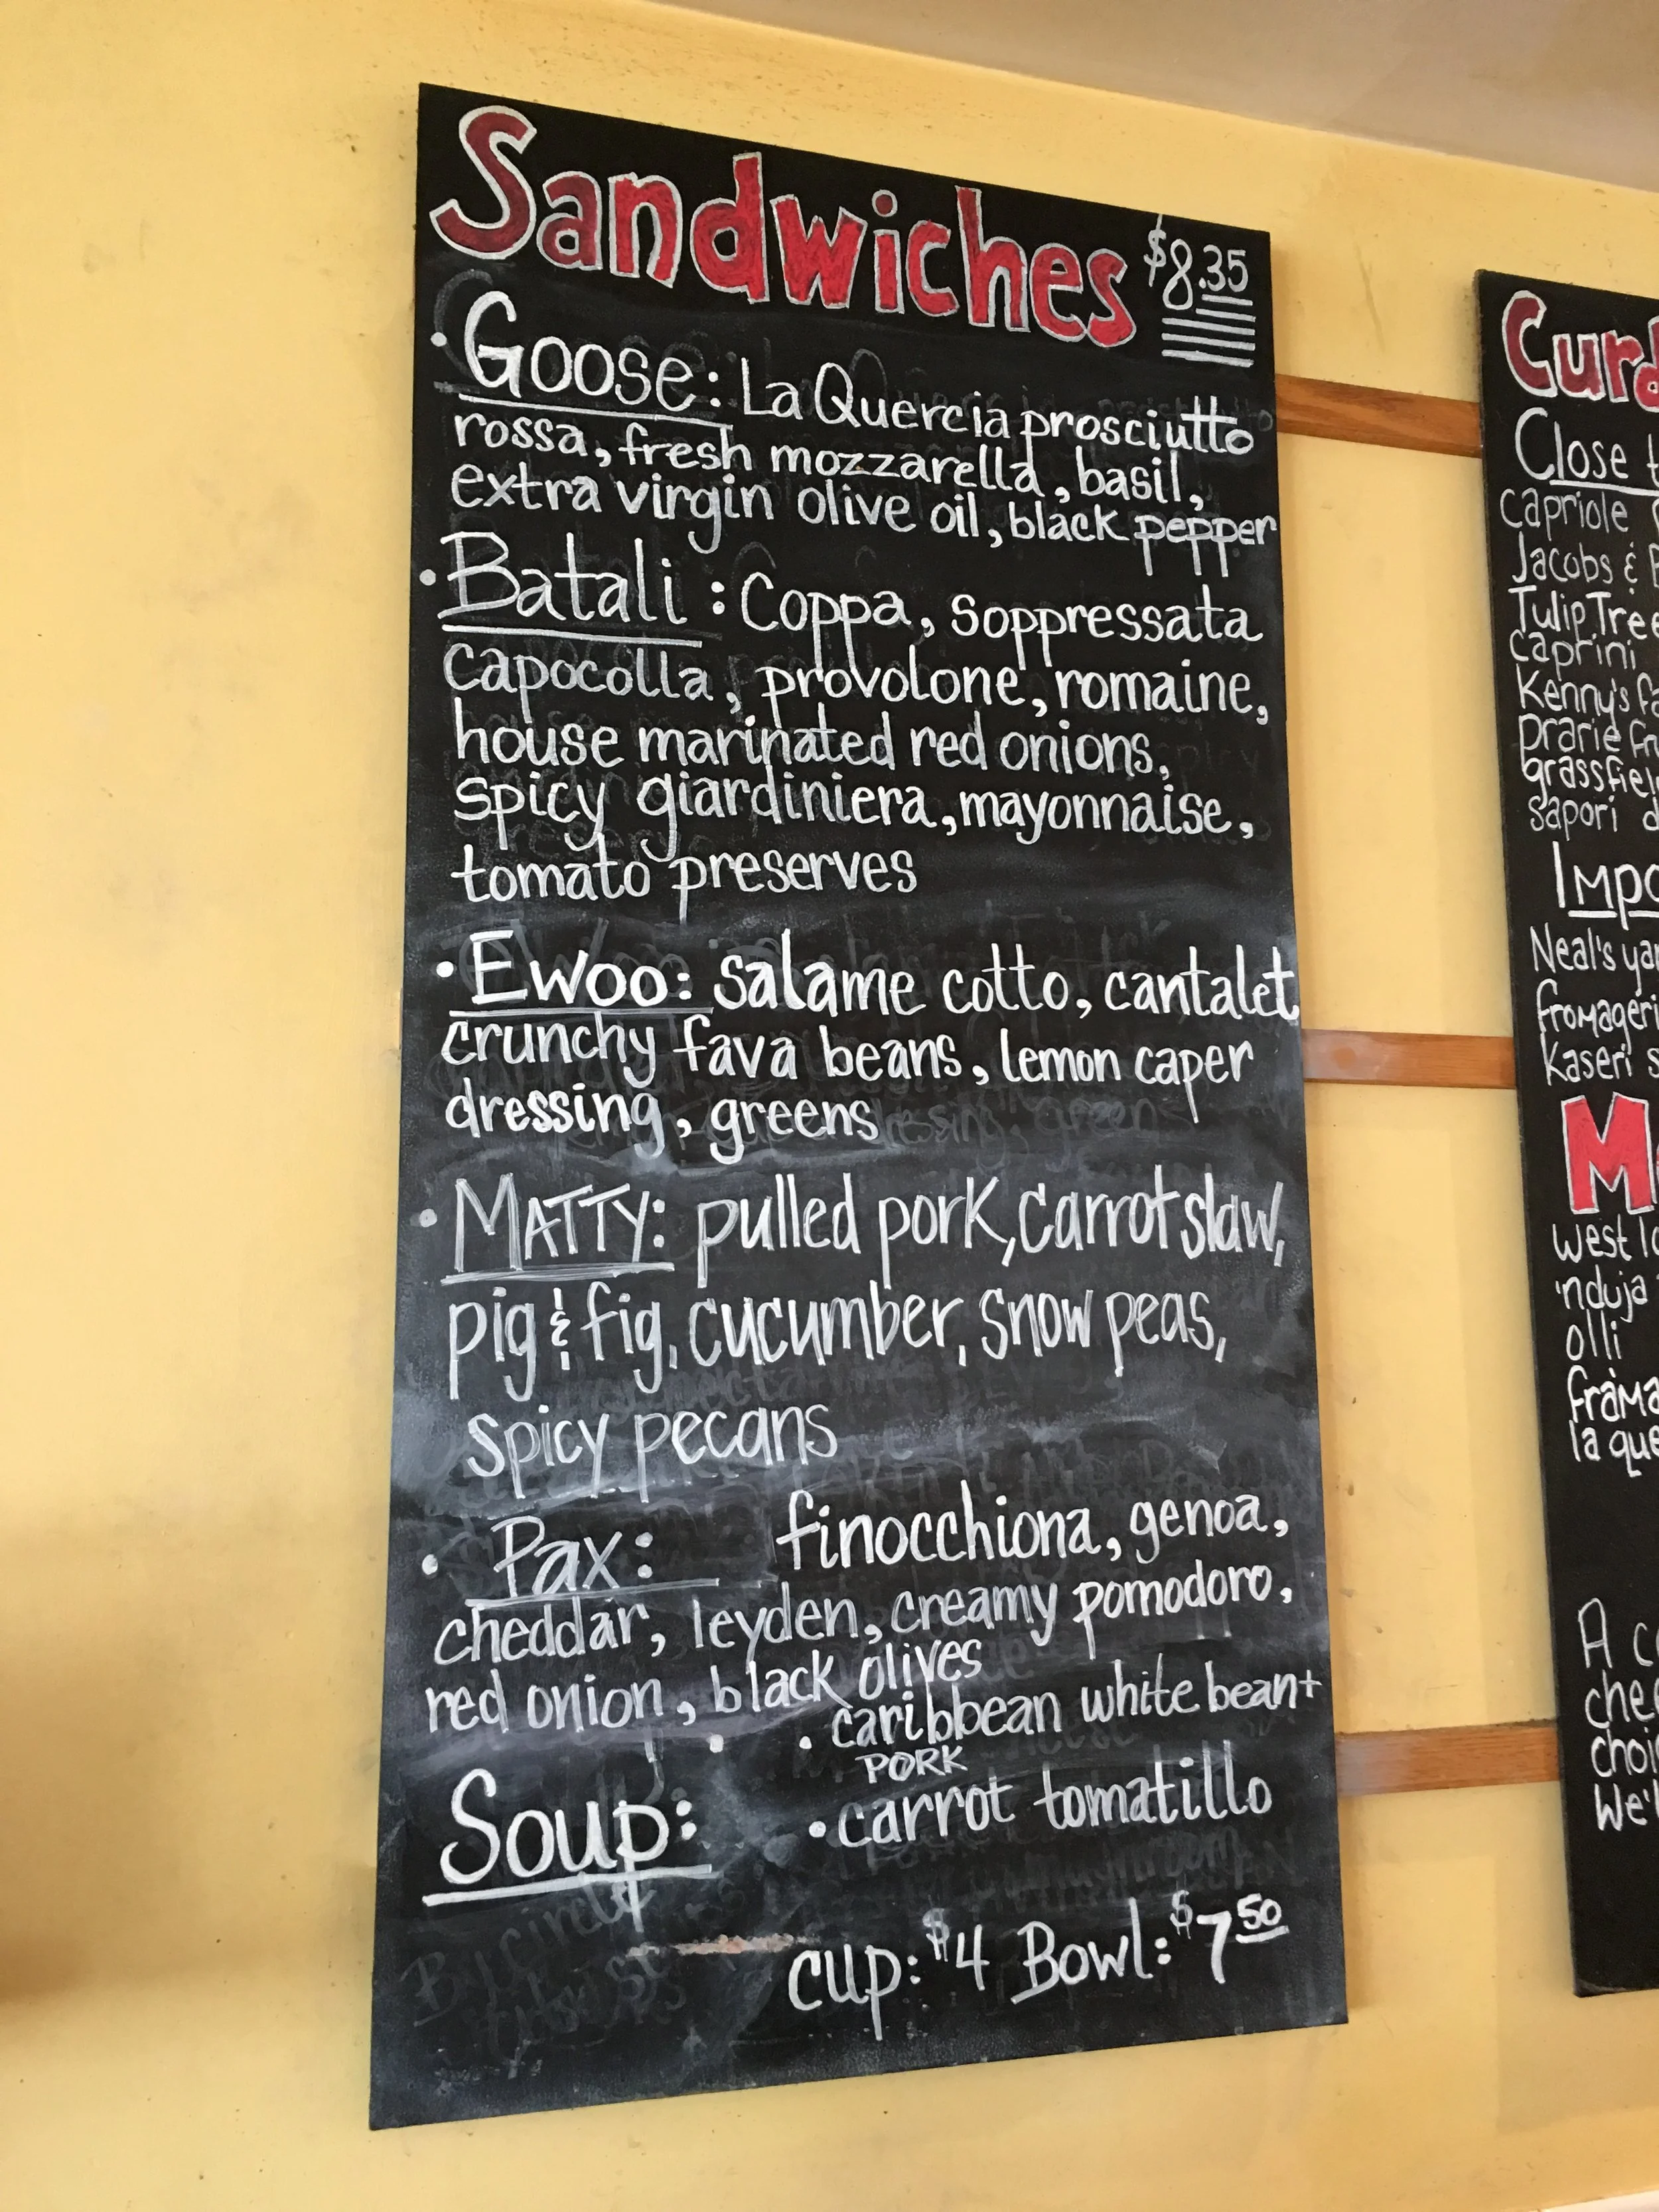 Sandwiches $8.35
• Goose: La Quercia prosciutto
rossa, fresh mozzarella, basil,
extra virgin olive oil, black pepper
• Batali: Coppa, soppressata
capocolla, provolone, romaine,
house marinated red onions,
spicy giardiniera, mayonnaise,
tomato preserves
• Ewoo: salame cotto, cantalet
crunchy fava beans, lemon caper
dressing, greens
• MATTY: pulled pork, carrot slaw,
pig & fig, cucumber, snow peas,
spicy pecans
• Pax: finocchiona, genoa,
cheddar, leyden, creamy pomodoro,
red onion, black olives
• caribbean white bean +
PORK
Soup: • carrot tomatillo
cup: $4 Bowl: $7 50
Curd
Close
Capriole
Jacobs &
Tulip Tree
caprini
Kenny's
prarie
grassfiel
sapori
Impo
Neal's yar
fromageri
kaseri
west
'nduja
olli
frama
la que
A
chee
choi
We'l